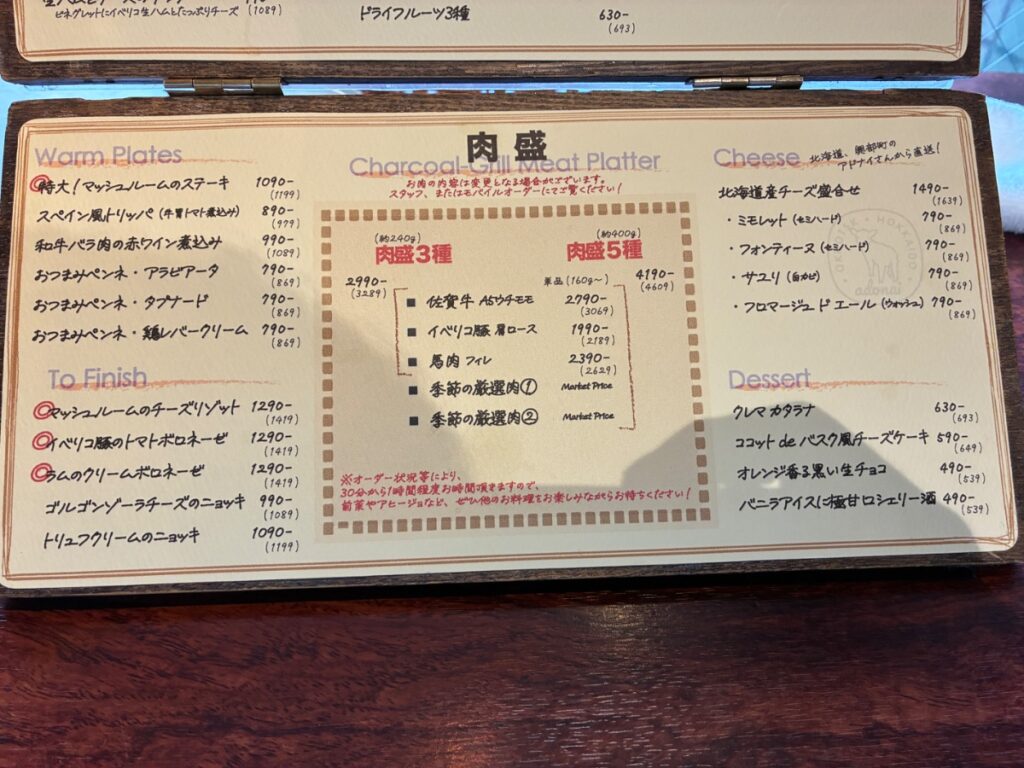 ビネグレットにイベリコ生ハムとたっぷりチーズ (1089)
ドライフルーツ3種 630-
(693)
Warm Plates
特大!マッシュルームのステーキ 1090-
(1199)
スペイン風トリッパ (牛胃トマト煮込み) 890-
(979)
和牛バラ肉の赤ワイン煮込み 990-
(1089)
おつまみペンネ・アラビアータ 790-
(869)
おつまみペンネ・タプナード 790-
(869)
おつまみペンネ・鶏レバークリーム 790-
(869)
To Finish
マッシュルームのチーズリゾット 1290-
(1419)
イベリコ豚のトマトボロネーゼ 1290-
(1419)
ラムのクリームボロネーゼ 1290-
(1419)
ゴルゴンゾーラチーズのニョッキ 990-
(1089)
トリュフクリームのニョッキ 1090-
(1199)
肉盛
Charcoal-Grill Meat Platter
お肉の内容は変更となる場合がございます。
スタッフ、またはモバイルオーダーにてご覧ください!
(約240g)
肉盛3種
2990-
(3289)
(約400g)
肉盛5種
単品 (160g〜) 4190-
(4609)
■ 佐賀牛 A5ウチモモ 2790-
(3069)
■ イベリコ豚 肩ロース 1990-
(2189)
■ 馬肉 フィレ 2390-
(2629)
■ 季節の厳選肉① Market Price
■ 季節の厳選肉② Market Price
※オーダー状況等により、
30分から1時間程度お時間頂きますので、
前菜やアヒージョなど、ぜひ他のお料理をお楽しみながらお待ちください!
Cheese 北海道、興部町の
アドナイさんから直送!
北海道産チーズ盛合せ 1490-
(1639)
・ミモレット (セミハード) 790-
(869)
・フォンティーヌ (セミハード) 790-
(869)
・サユリ (白カビ) 790-
(869)
・フロマージュ ド エール (ウォッシュ) 790-
(869)
HOKKAIDO
adonai
Dessert
クレマ カタラナ 630-
(693)
ココット de バスク風チーズケーキ 590-
(649)
オレンジ香る黒い生チョコ 490-
(539)
バニラアイスに極甘口シェリー酒 490-
(539)